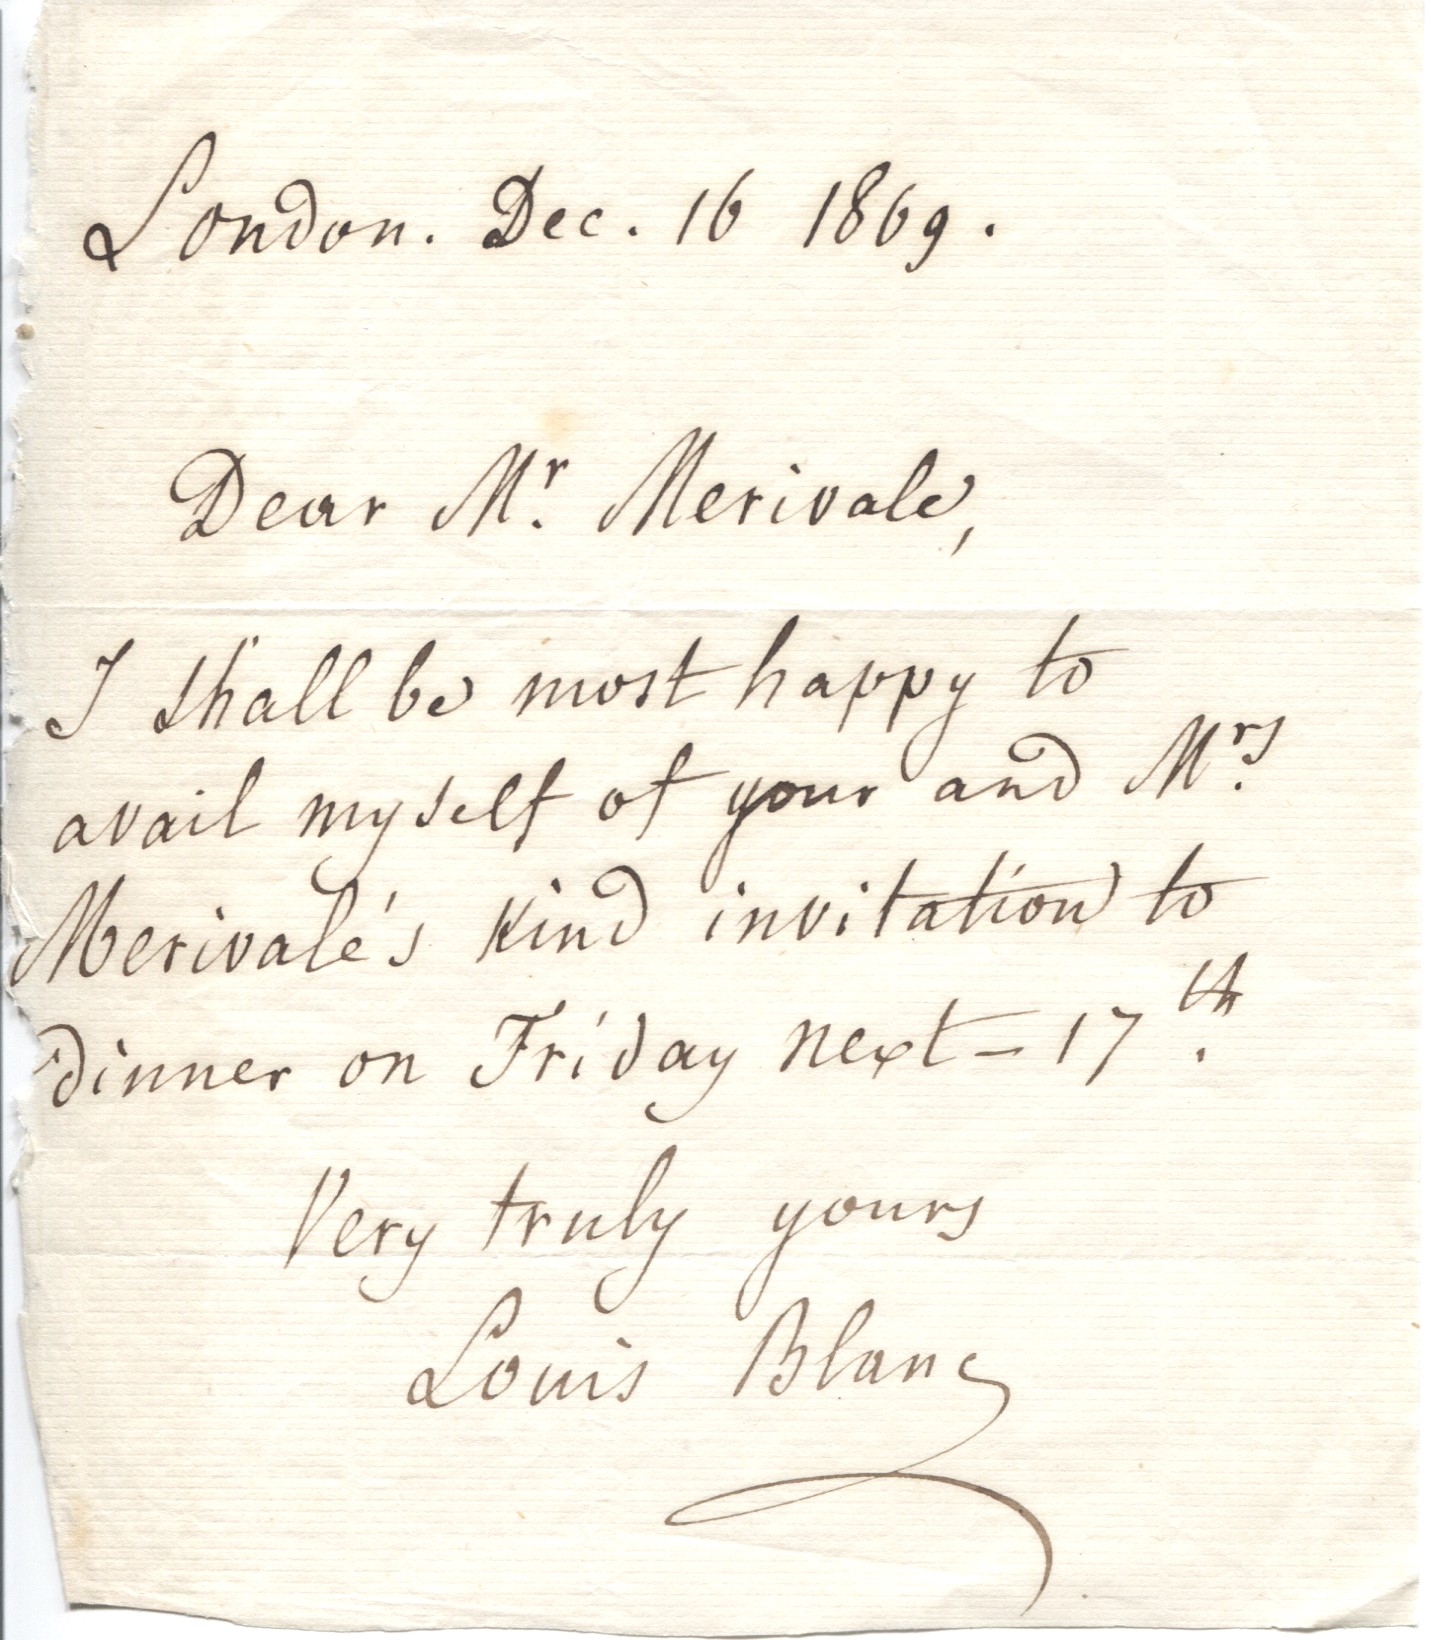 London. Dec. 16 1869.
Dear Mr. Merivale,
I shall be most happy to
avail myself of your and Mrs.
Merivale's kind invitation to
dinner on Friday next - 17th.
Very truly yours
Louis Blanc